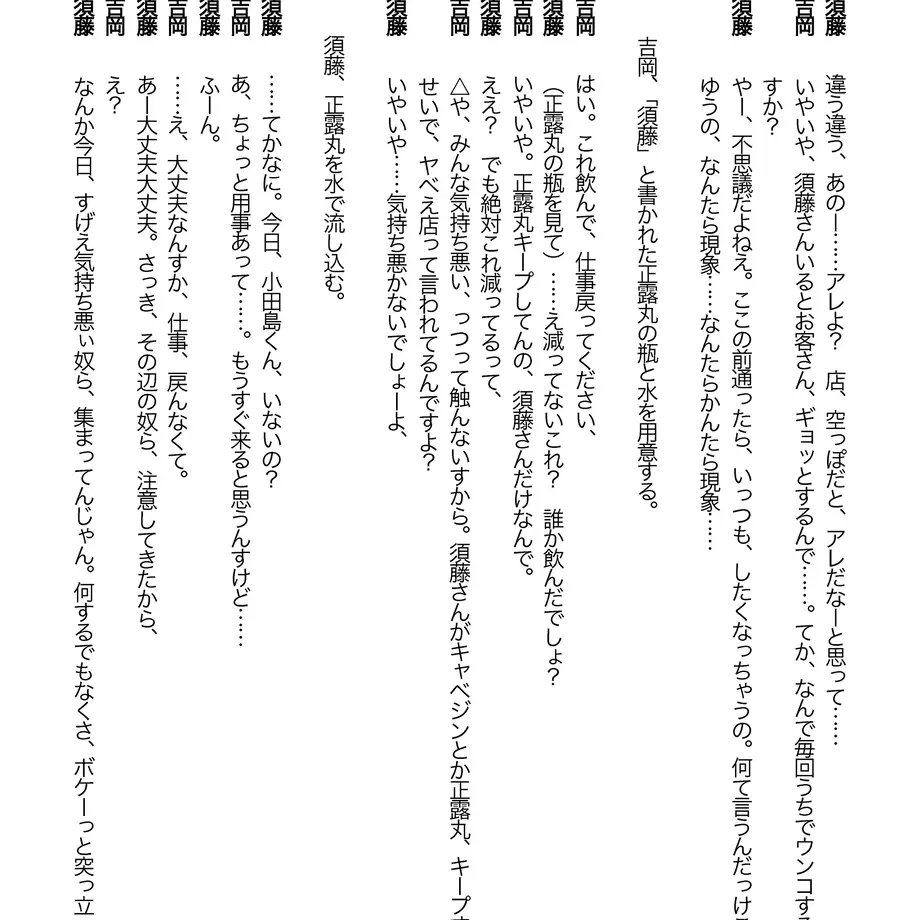 須藤　違う違う、あのー……アレよ？　店、空っぽだと、アレだなーと思って……
吉岡　いやいや、須藤さんいるとお客さん、ギョッとするんで……。てか、なんで毎回うちでウンコする
すか？
須藤　やー、不思議だよねえ。ここの前通ったら、いっつも、したくなっちゃうの。何て言うんだっけ
ゆうの、なんたら現象……なんたらかんたら現象……
吉岡、「須藤」と書かれた正露丸の瓶と水を用意する。
吉岡　はい。これ飲んで、仕事戻ってください、
須藤　（正露丸の瓶を見て）……え減ってないこれ？　誰か飲んだでしょ？
吉岡　いやいや。正露丸キープしてんの、須藤さんだけなんで。
須藤　ええ？　でも絶対これ減ってるって、
吉岡　△や、みんな気持ち悪い、っつって触んないすから。須藤さんがキャベジンとか正露丸、キープ
せいで、ヤベえ店って言われてるんですよ？
須藤　いやいや……気持ち悪かないでしょーよ、
須藤、正露丸を水で流し込む。
須藤　……てかなに。今日、小田島くん、いないの？
吉岡　あ、ちょっと用事あって……。もうすぐ来ると思うんすけど……
須藤　ふーん。
吉岡　……え、大丈夫なんすか、仕事、戻んなくて。
須藤　あー大丈夫大丈夫。さっき、その辺の奴ら、注意してきたから、
吉岡　え？
須藤　なんか今日、すげえ気持ち悪ぃ奴ら、集まってんじゃん。何するでもなくさ、ボケーっと突っ立